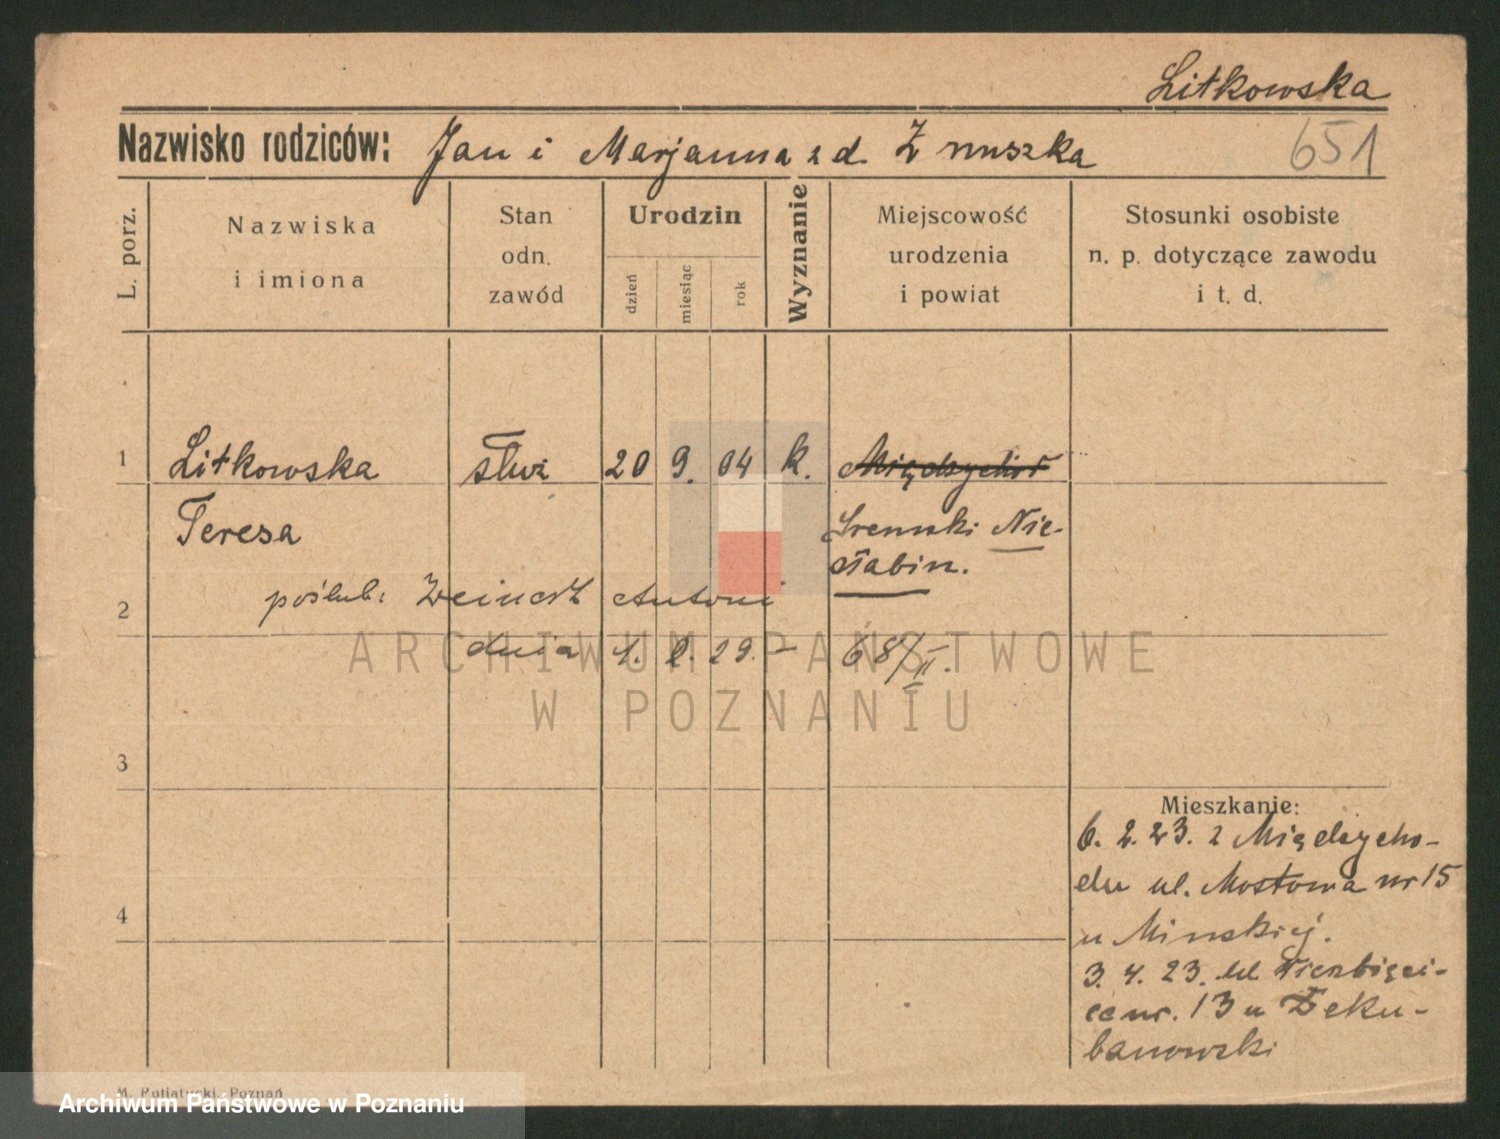 Litkowska
Nazwisko rodziców: Jan i Marjanna z d. Żmuszka
651
L. porz.
Nazwiska
i imiona
Stan
odn.
zawód
Urodzin
dzień
miesiąc
rok
Wyznanie
Miejscowość
urodzenia
i powiat
Stosunki osobiste
n. p. dotyczące zawodu
i t. d.
1 Litkowska służ 20 9. 04 k. Międzychód
Teresa
Śremski Nie-
słabin.
2 poślub: Antoni
dnia 1. 2. 29. – 68/II.
ARCHIWUM PAŃSTWOWE
W POZNANIU
3
Mieszkanie:
6. 2. 23. z Międzycho-
du ul. Mostowa nr 15
4
u Minskiej.
3. 4. 23. ul Wierzbięci-
ce nr. 13 u
M. Putiatycki, Poznań
Archiwum Państwowe w Poznaniu